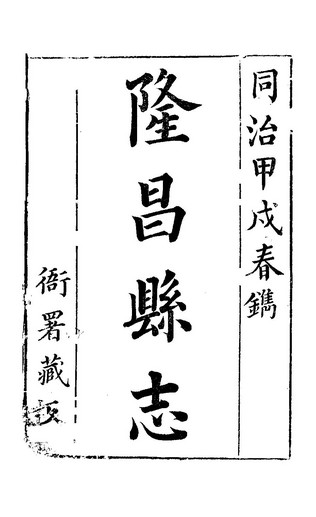 同治甲戌春鐫
隆昌縣志
衙署藏板